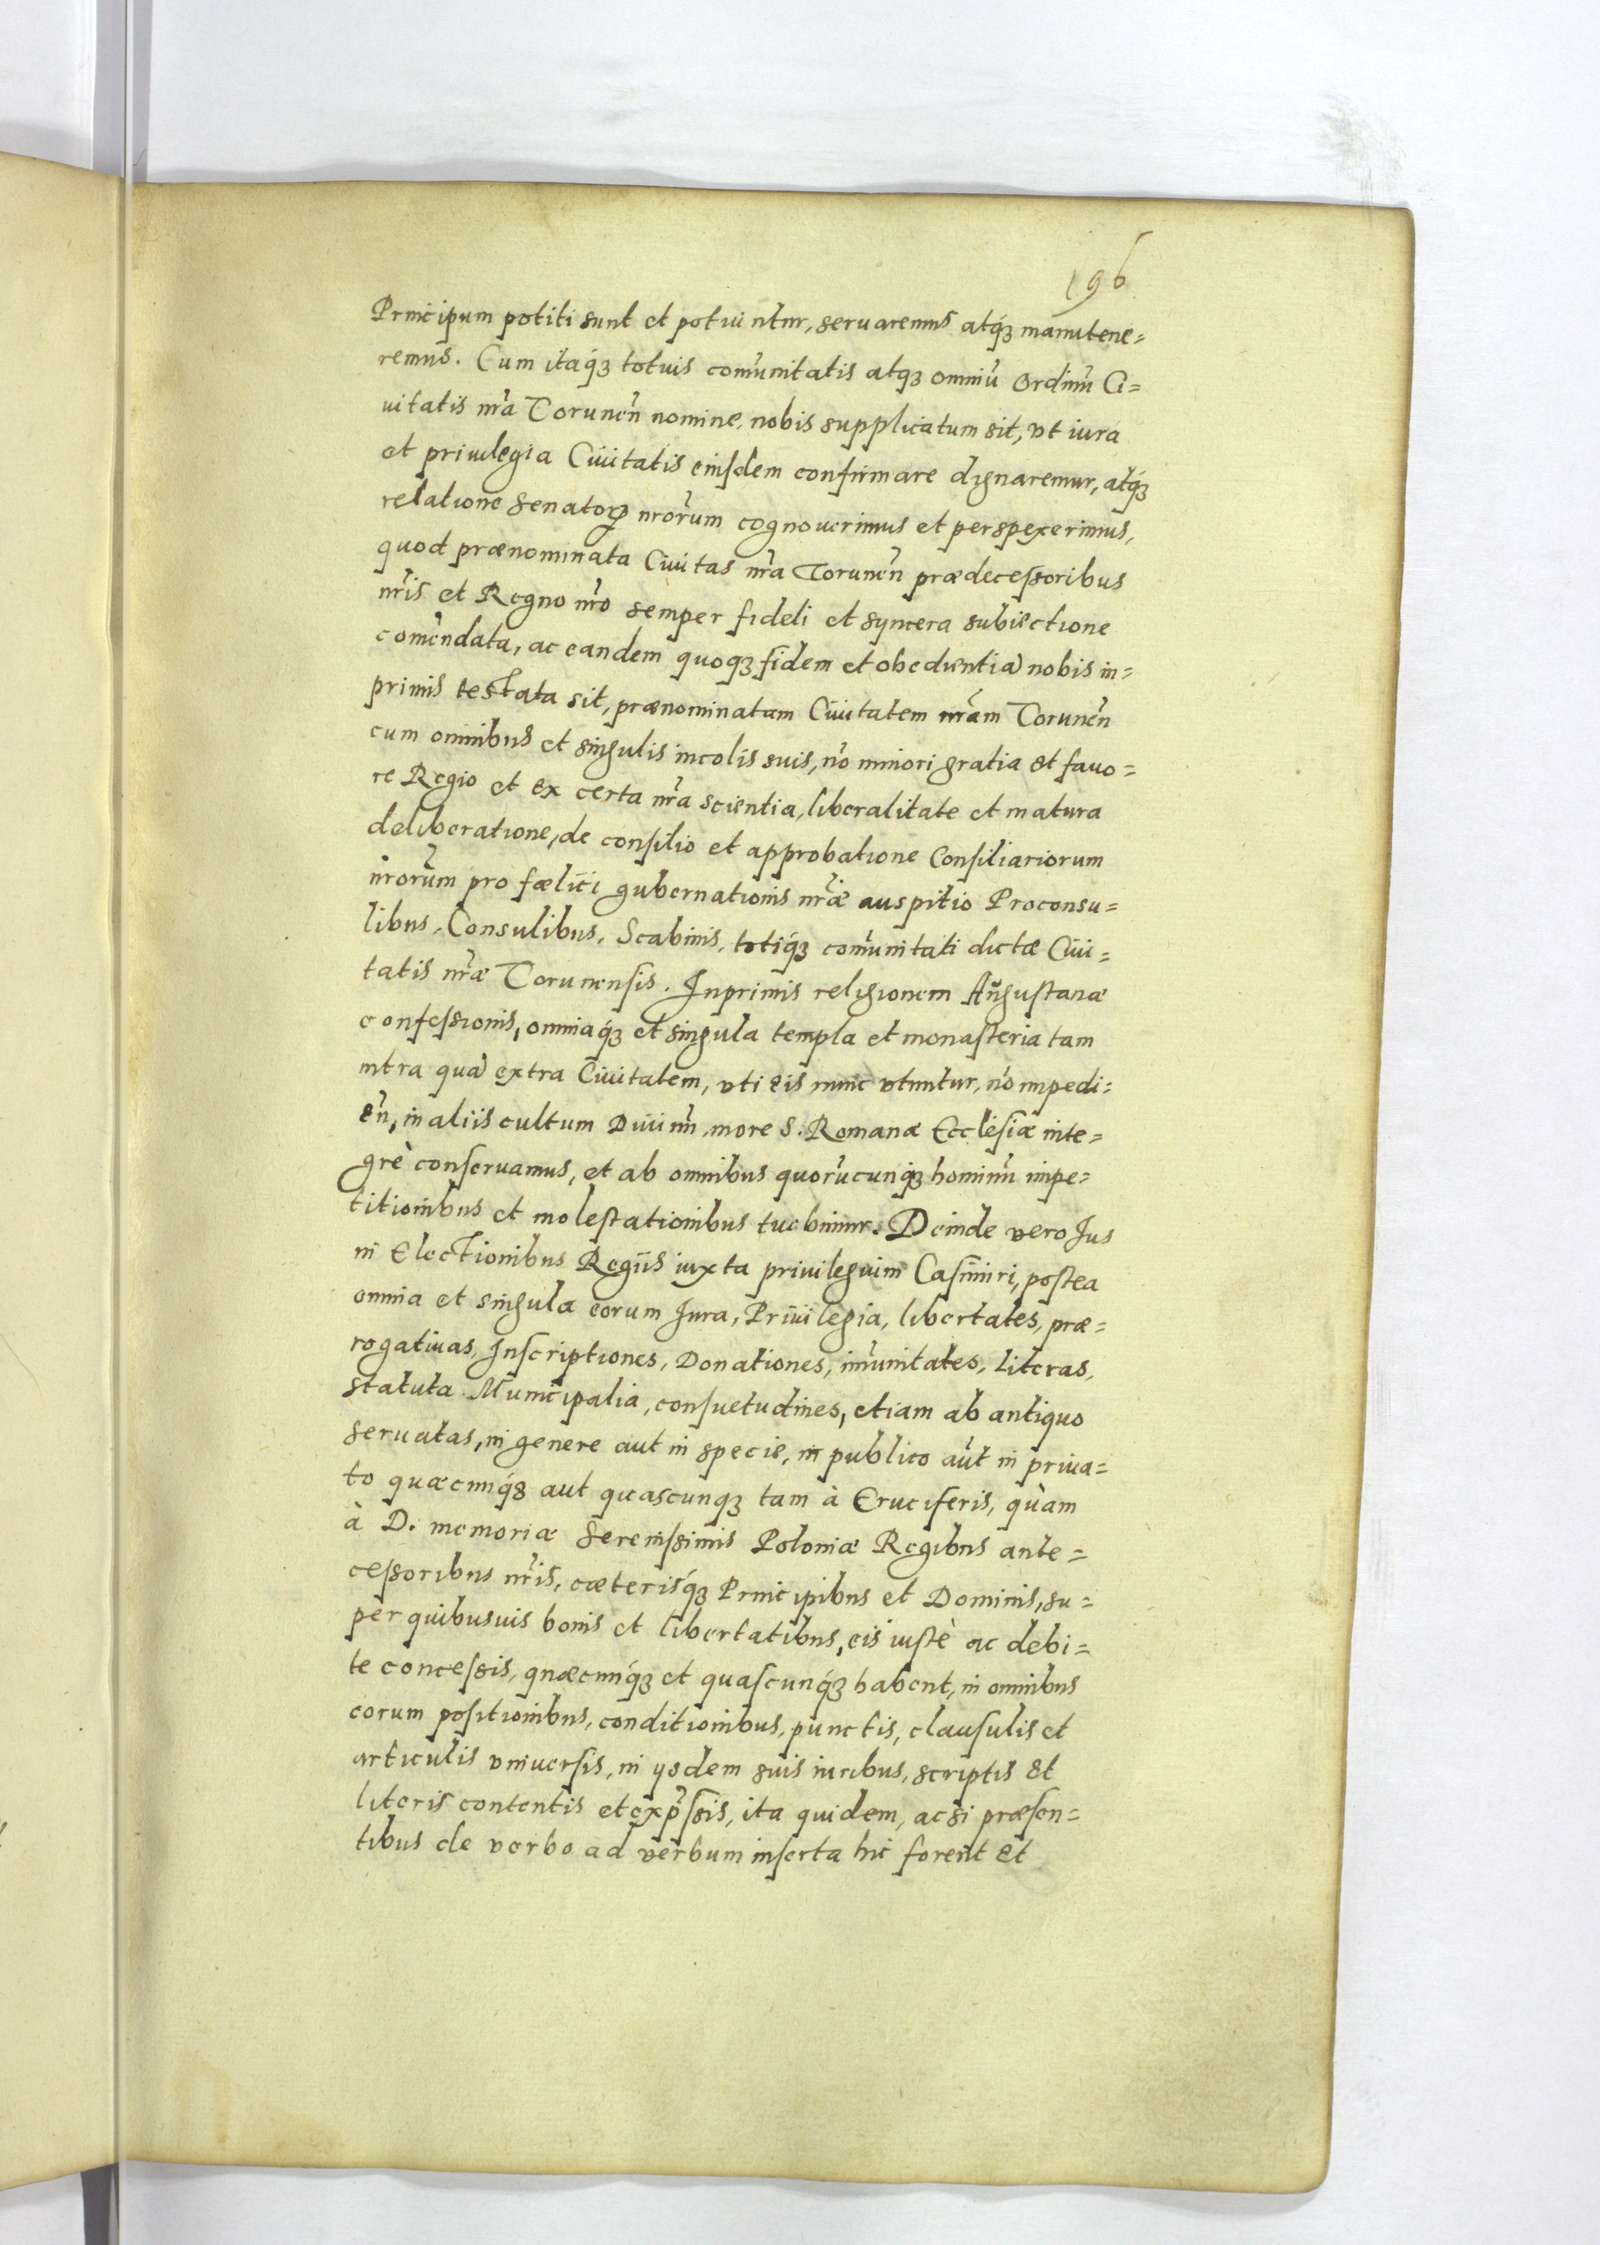 196
Principum potiti sunt et potiuntur, seruaremus atq́ꝫ manutene=
remus. Cum itaq́ꝫ totius com̃unitatis atqꝫ omniũ Ordinũ Ci=
uitatis nr̃a Torunẽn nomine, nobis supplicatum sit, vt iura
et priuilegia Ciuitatis eiusdem confirmare dignaremur, atq́ꝫ
relatione Senatorꝝ nrõrum cognouerimus et perspexerimus,
quod prænominata Ciuitas nr̃a Torunẽn prædeceſsoribus
nr̃is et Regno nr̃o semper fideli et syncera subiectione
com̃endata, ac eandem quoqꝫ fidem et obedientiã nobis in=
primis testata sit, prænominatam Ciuitatem nr̃am Torunẽn
cum omnibus et singulis incolis suis, nõ minori gratia et fauo=
re Regio et ex certa nr̃a scientia, liberalitate et matura
deliberatione, de conſilio et approbatione Conſiliariorum
nrõrum pro fælici gubernationis nr̃æ auspitio Proconsu=
libus, Consulibus, Scabinis, totiq́ꝫ com̃unitati dictæ Ciui=
tatis nr̃æ Torunenſis. Inprimis religionem Auguſtanæ
confeſsionis, omniaq́ꝫ et singula templa et monaſteria tam
intra quã extra Ciuitatem, vti eis nunc vtuntur, nõ impedi=
eñ, in aliis cultum Diuinũ more S. Romanæ Eccleſiæ inte=
grè conſeruamus, et ab omnibus quorũcunq́ꝫ hominũ impe=
titionibus et moleſtationibus tuebimur. Deinde vero Jus
in Electionibus Regiis iuxta priuilegium Caſimiri, poſtea
omnia et singula eorum Jura, Priuilegia, libertates, præ=
rogatiuas, Inſcriptiones, Donationes, im̃unitates, Literas,
Statuta Municipalia, conſuetudines, etiam ab antiquo
seruatas, in genere aut in specie, in publico aut in priua=
to quæcunq́ꝫ aut quascunqꝫ tam à Cruciferis, quàm
à D. memoriæ Sereniſsimis Poloniæ Regibus ante=
ceſsoribus nr̃is, cæterisq́ꝫ Principibus et Dominis, su=
per quibusuis bonis et libertatibus, eis iuſtè ac debi=
te conceſsis, quæcunq́ꝫ et quaſcunq́ꝫ habent, in omnibus
eorum poſitionibus, conditionibus, punctis, clauſulis et
articulis vniuerſis, in ysdem suis iuribus, scriptis et
literis contentis et exp̃ſsis, ita quidem, ac si præſen=
tibus de verbo ad verbum inſerta hic forent et